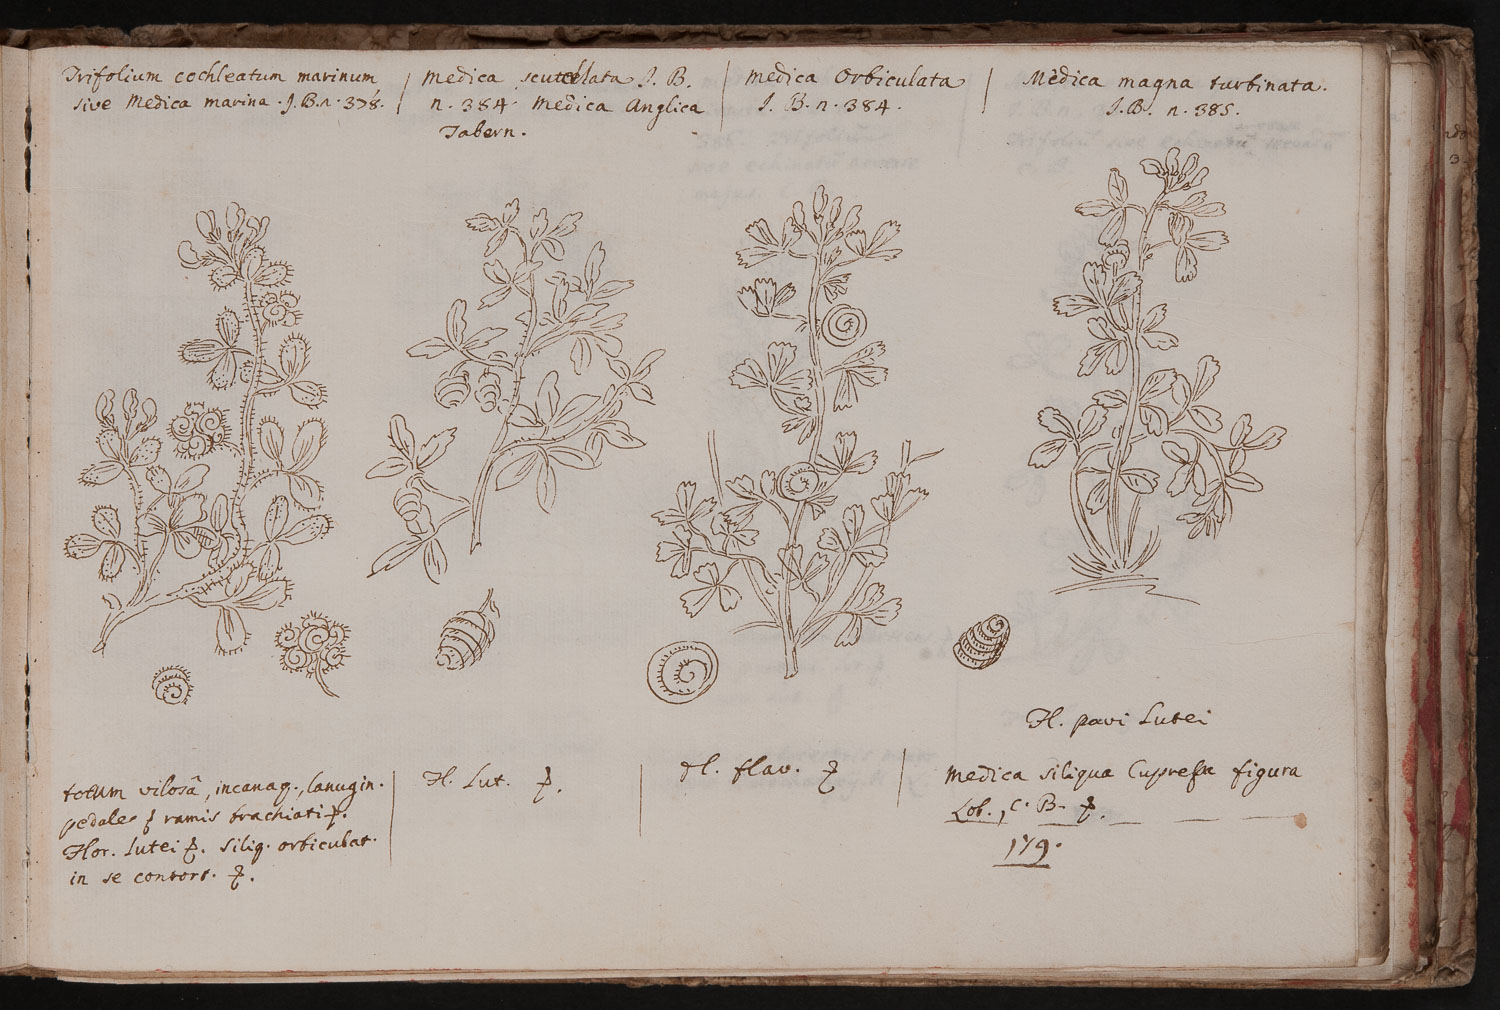 Trifolium cochleatum marinum
sive Medica marina. J.B.n. 378.
Medica scutellata J. B.
n. 384. Medica Anglica
Tabern.
Medica Orbiculata
J. B. n. 384.
Medica magna turbinata.
J.B. n. 385.
Fl. pavi Lutei
totum vilosâ, incanaq., lanugin.
pedales ramis brachiati
Flor. lutei siliq. orbiculat.
in se contort.
Fl. Lut.
fl. flav.
Medica siliqua Cupressi figura
Lob., C. B.
179.